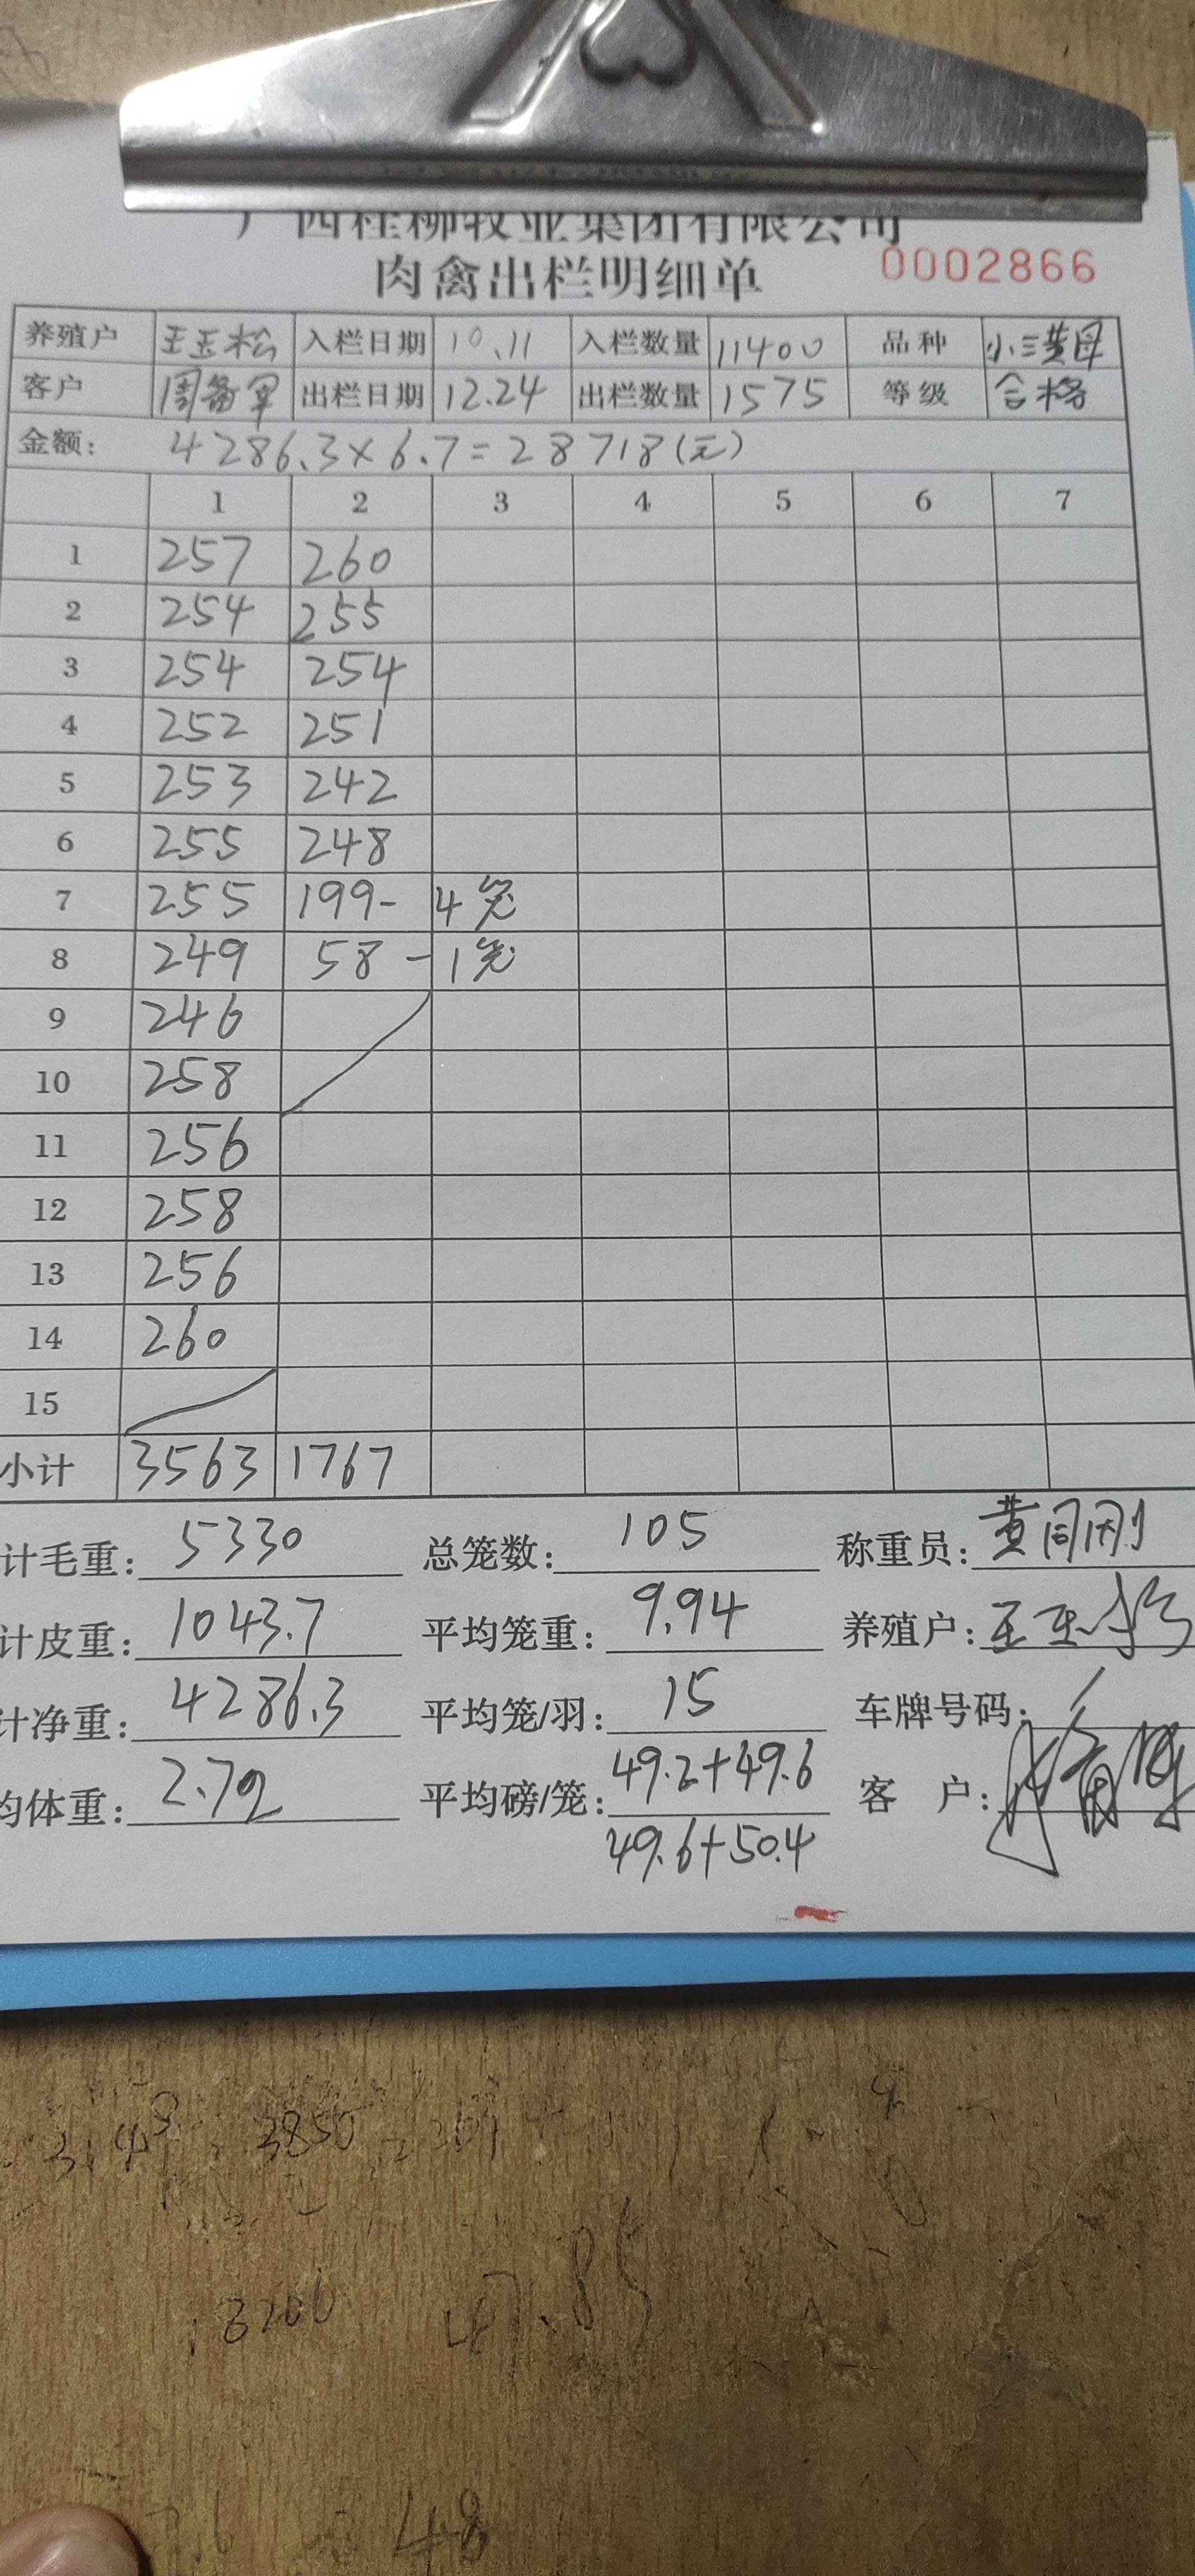 广西桂柳牧业集团有限公司
肉禽出栏明细单 0002866
养殖户 王玉松 入栏日期 10.11 入栏数量 11400 品种 小三黄母
客户 出栏日期 12.24 出栏数量 1575 等级 合格
金额: 4286.3×6.7=28718(元)
1 2 3 4 5 6 7
1 257 260
2 254 255
3 254 254
4 252 251
5 253 242
6 255 248
7 255 199- 4笼
8 249 58 - 1笼
9 246
10 258
11 256
12 258
13 256
14 260
15
小计 3563 1767
计毛重: 5330 总笼数: 105 称重员:
计皮重: 1043.7 平均笼重: 9.94 养殖户: 王玉松
计净重: 4286.3 平均笼/羽: 15 车牌号码:
均体重: 2.72 平均磅/笼: 49.2+49.6 客 户:
49.6+50.4
3850
47.85
48